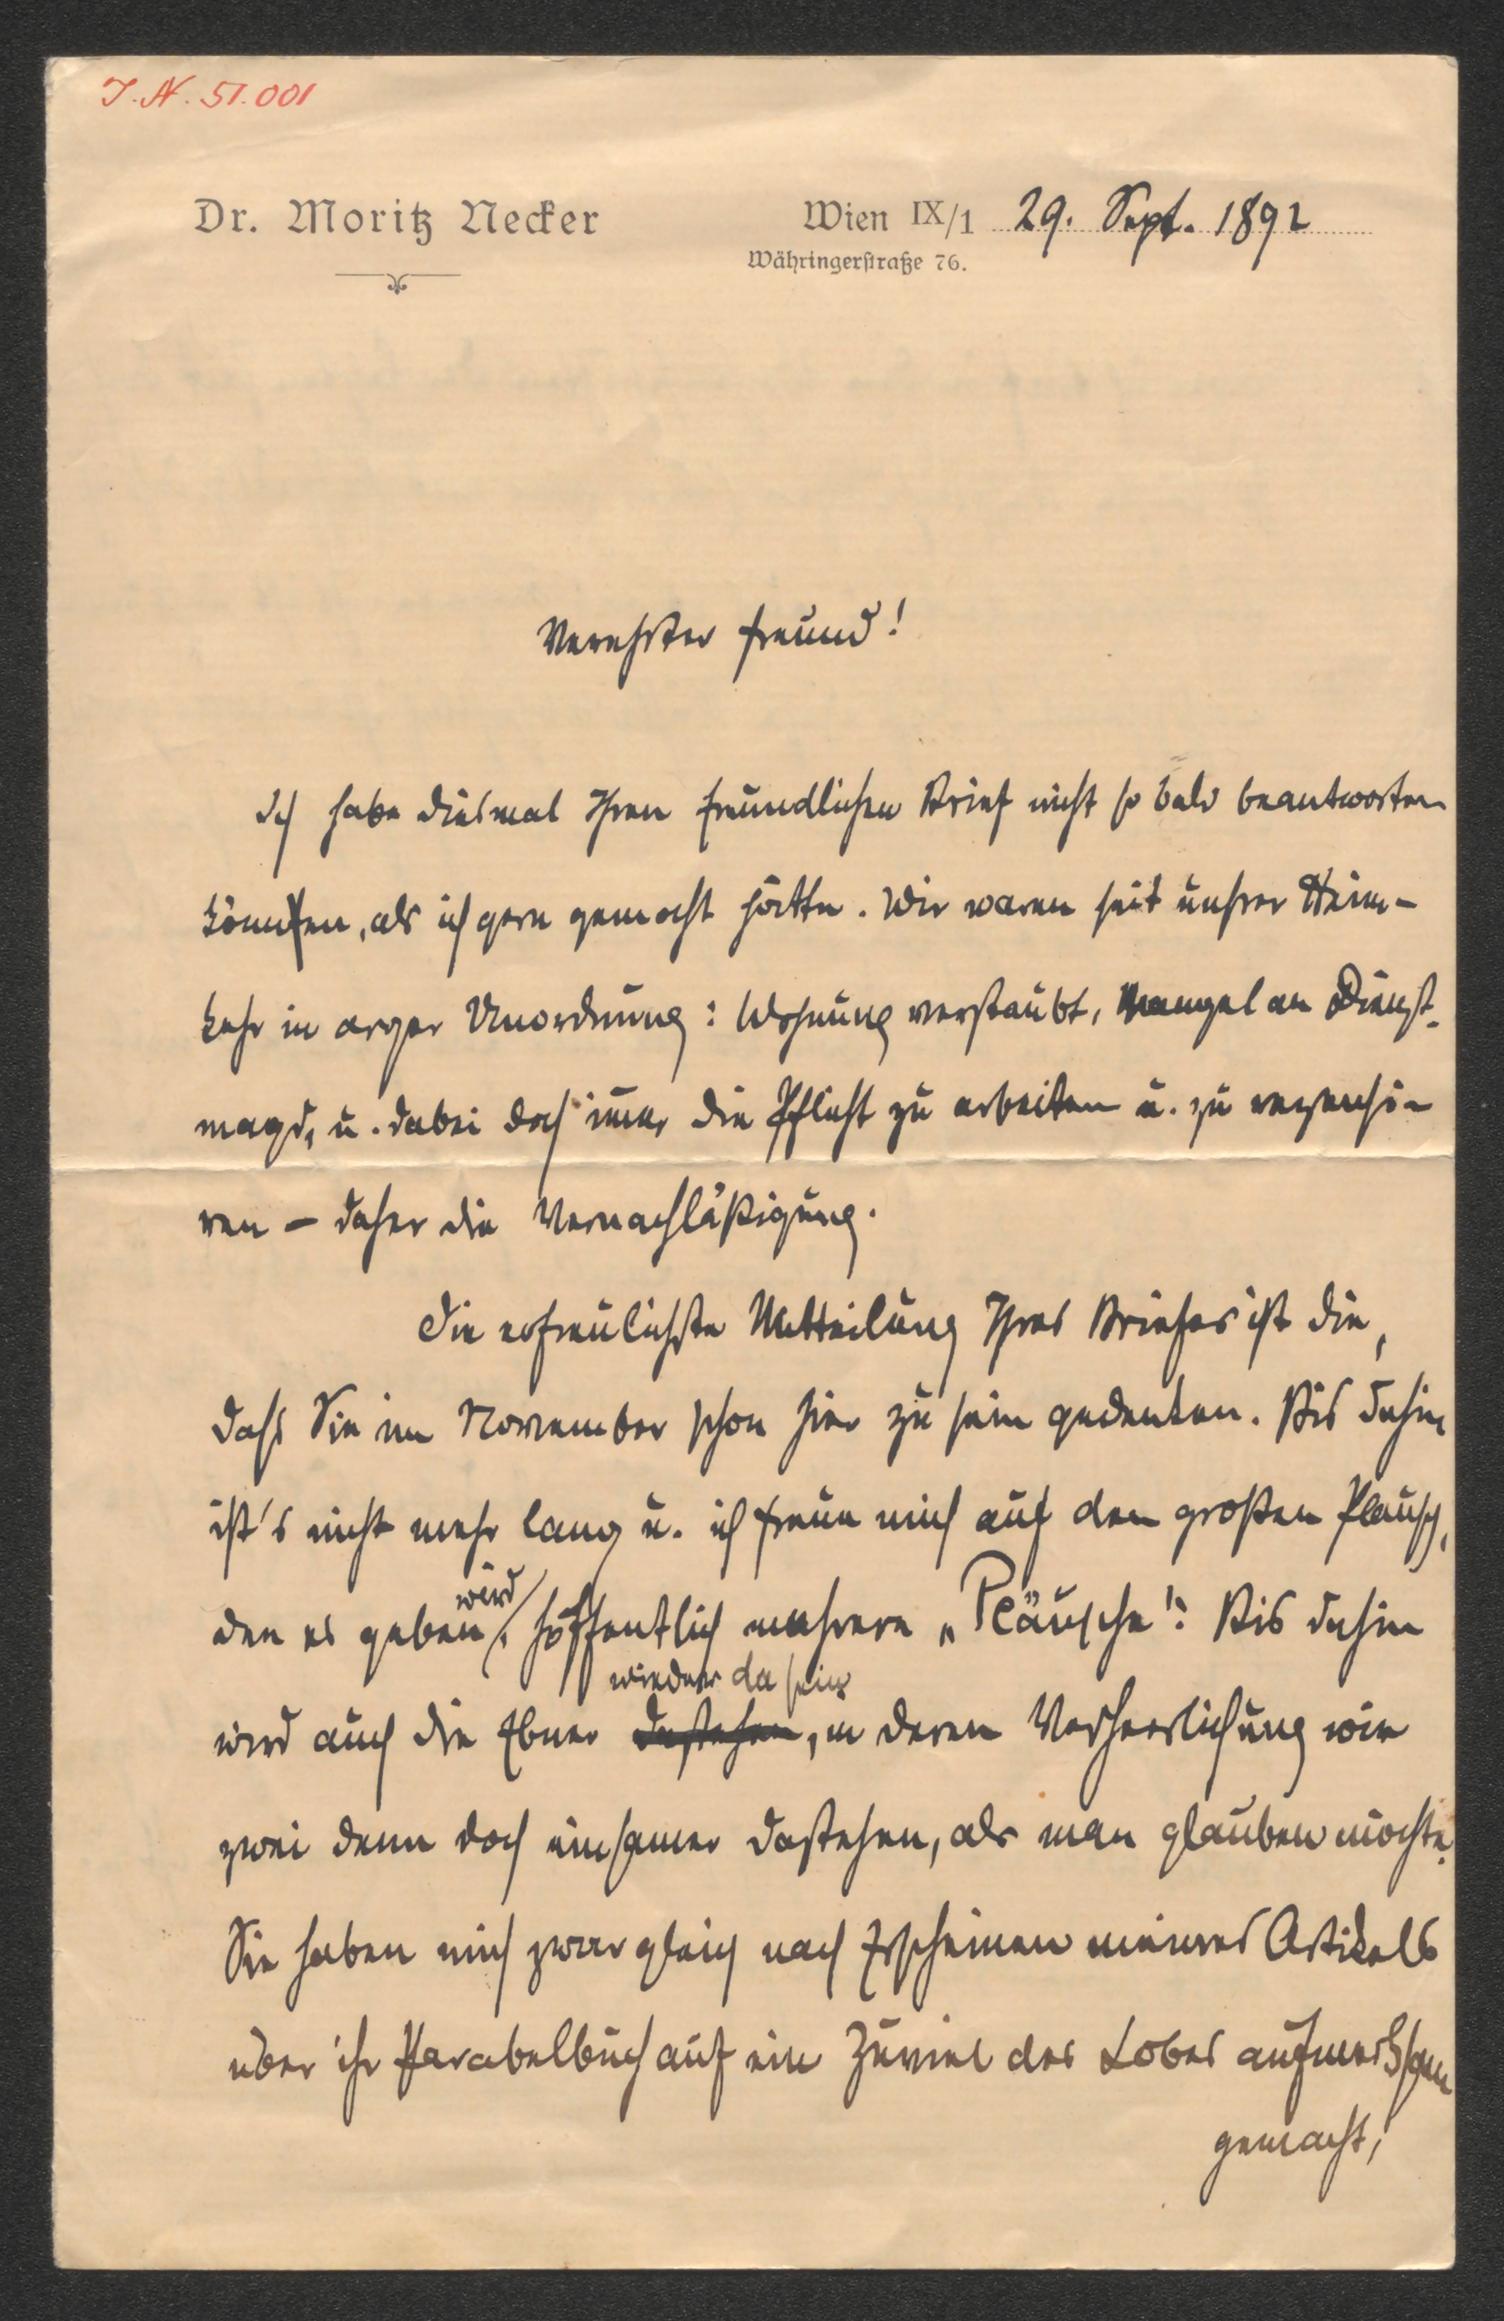 J. N. 51.001
Dr. Moritz Necker
Wien IX/1 29. Sept. 1892
Währingerstraße 76.
Verehrter Freund!
Ich habe diesmal Ihren freundlichen Brief nicht so bald beantworten
können, als ich gern gemocht hätte. Wir waren seit unsrer Heim-
kehr in arger Unordnung: Wohnung verstaubt, Mangel an Dienst-
magd, u. dabei doch immer die Pflicht zu arbeiten u. zu rezensi-
ren – daher die Vernachläßigung.
Die erfreulichste Mitteilung Ihres Briefes ist die,
daß Sie im November schon hier zu sein gedenken. Bis dahin
ist's nicht mehr lang u. ich freue mich auf den großen Plausch,
den es geben wird, hoffentlich mehrere „Pläusche“. Bis dahin
wieder da sein
wird auch die Ebner dastehen, in deren Verherrlichung wir
zwei denn doch einsamer dastehen, als man glauben möchte.
Sie haben mich zwar gleich nach Erscheinen meines Artikels
über ihr Parabelbuch auf ein Zuviel des Lobes aufmerksam
gemacht;